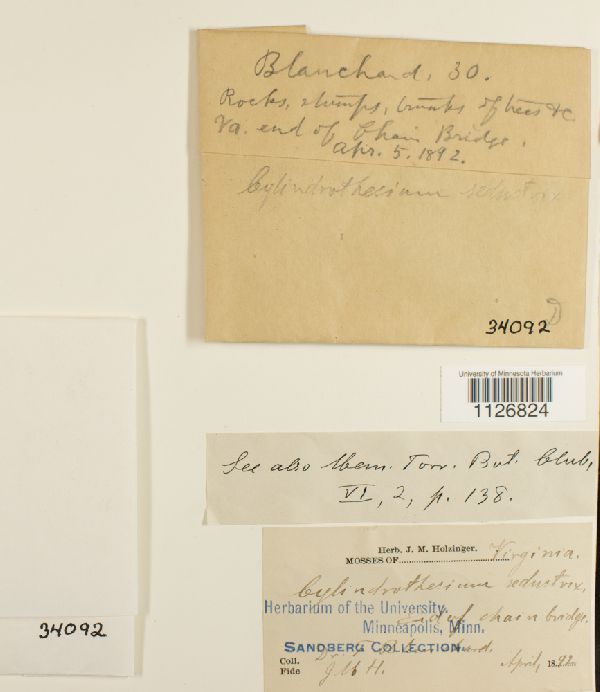 Blanchard, 30.
Rocks, stumps, trunks of trees &c
Va. end of Chain Bridge.
Apr. 5. 1892.
Cylindrothecium seductrix
34092
University of Minnesota Herbarium
1126824
See also Mem. Torr. Bot. Club,
VI, 2, p. 138.
Herb. J. M. Holzinger.
MOSSES OF Virginia.
Cylindrothecium seductrix,
Herbarium of the University.
end of chain bridge.
Minneapolis, Minn.
SANDBERG COLLECTION
Coll. Blanchard. April, 1892
Fide J M H.
34092